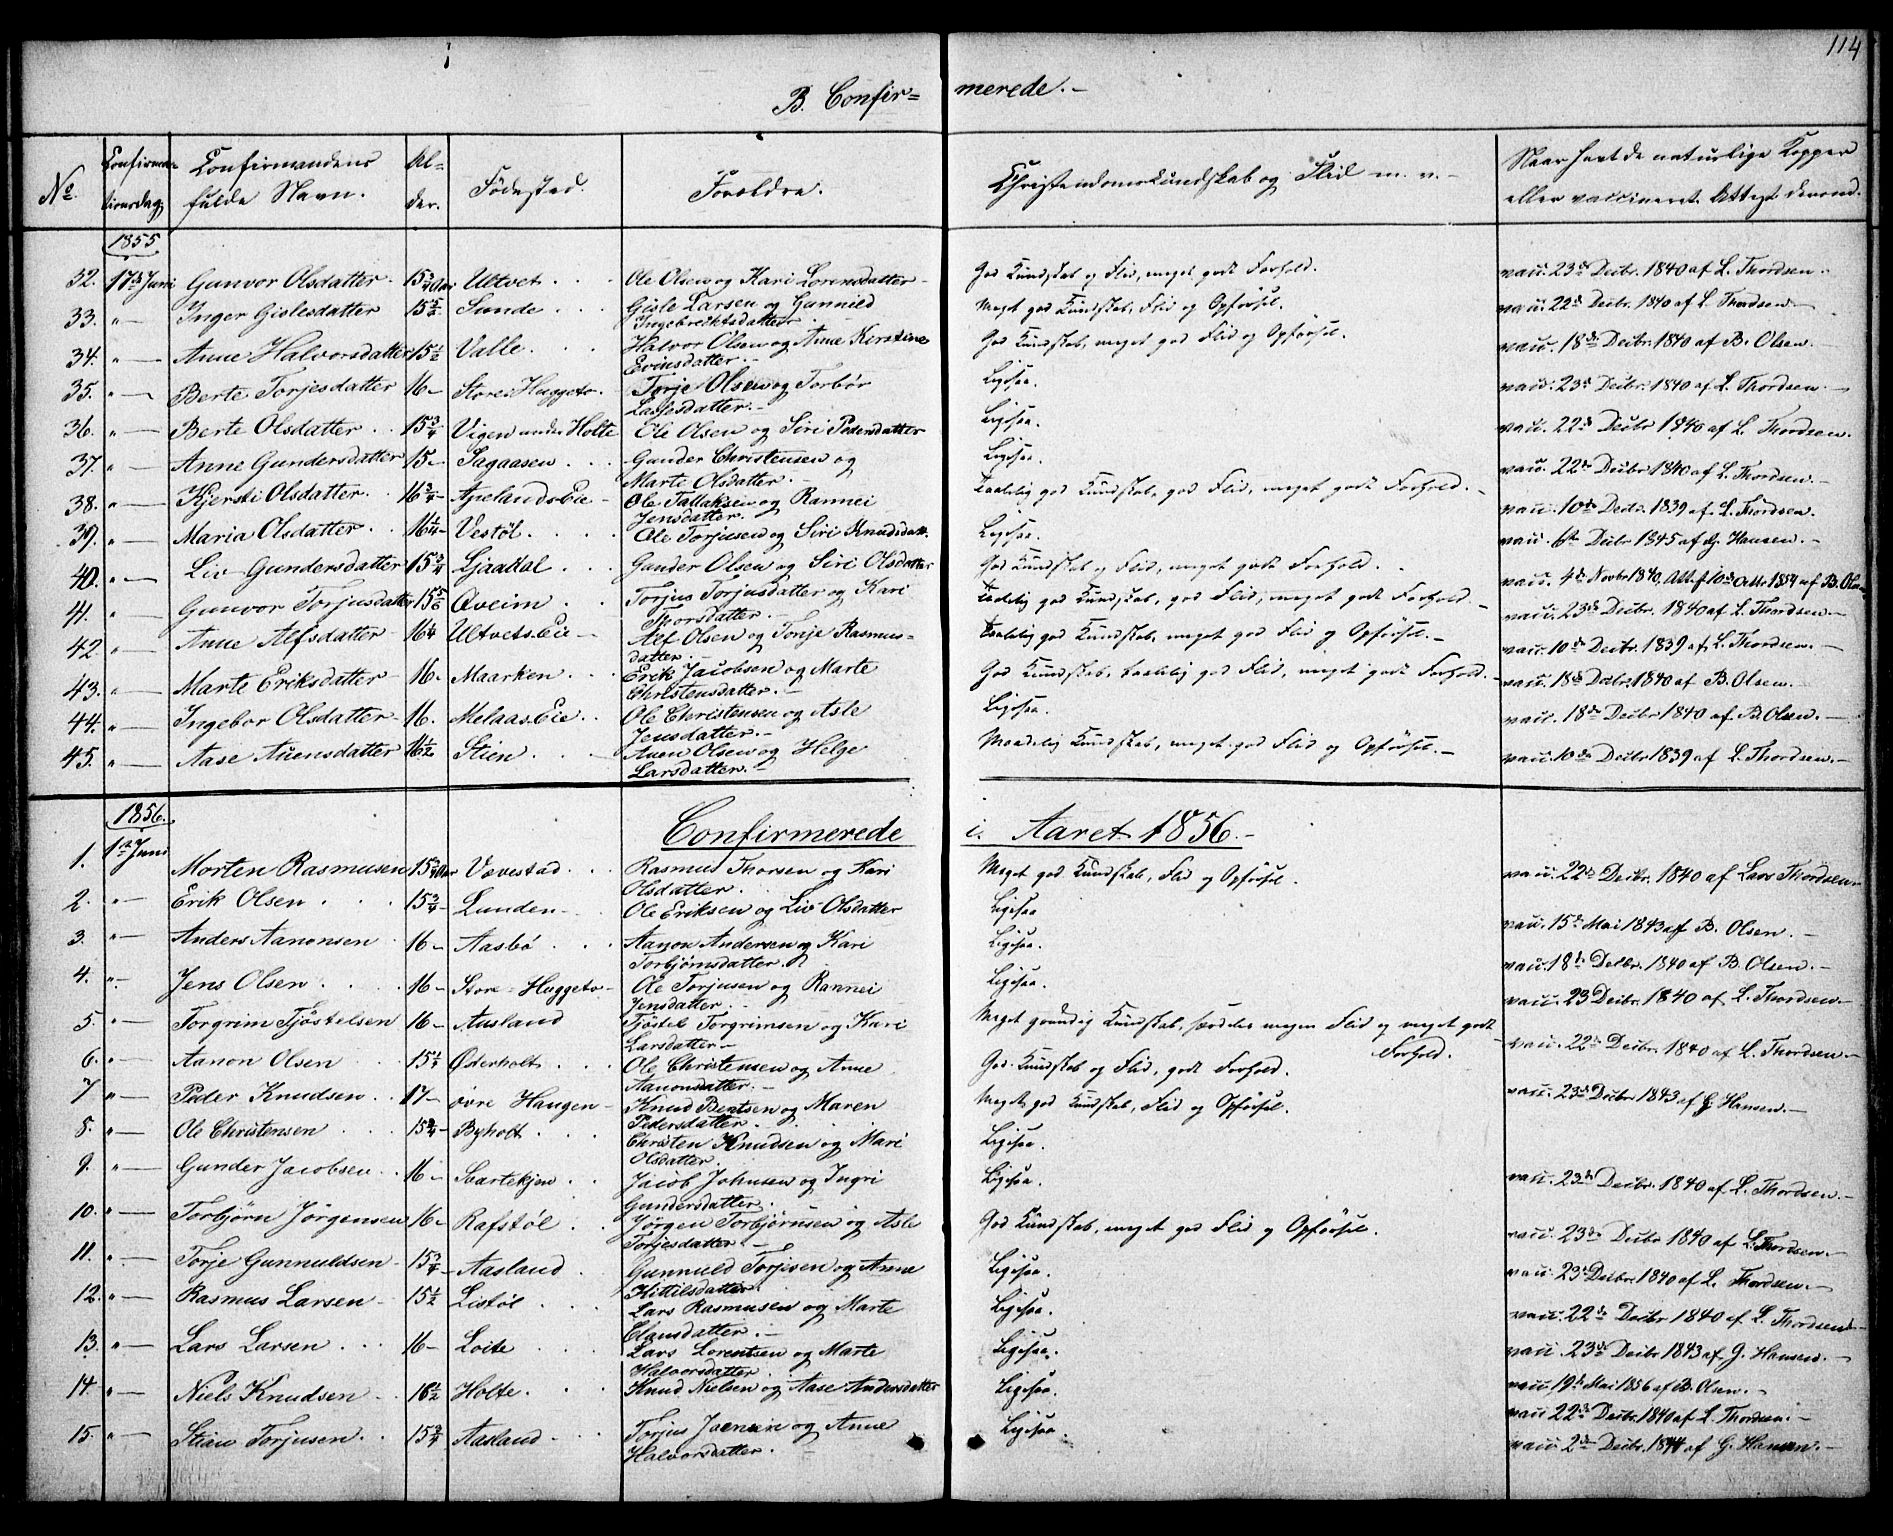 114
B. Confir= merede.-
No. Confirmationsdag Confirmandens fulde Navn. Alder. Fødested. Forældre. Christendomskundskab og Flid m. v.- Naar havt de naturlige Kopper
eller vaccineret. Attest derom.
1855
32. 17de Juni Gunvor Olsdatter 15 3/4 Aar Ultvet. Ole Olsen og Kari Lorensdatter God Kundskab og Flid, meget godt Forhold. vacc. 23de Decbr. 1840 af L. Thordsen.
33. " Inger Gislesdatter 15 1/2 Sunde Gisle Larsen og Gunnild Ingebrektsdatter Meget god Kundskab, Flid og Opførsel. vacc. 22de Decbr. 1840 af L. Thordsen.
34. " Anne Halvorsdatter 15 1/2 Valle. Halvor Olsen og Anne Kirstine Evinsdatter.- God Kundskab, meget god Flid og Opførsel. vacc. 18de Decbr. 1840 af B. Olsen.
35. " Berte Torjesdatter 16 Store Huggeto. Torje Olsen og Torbør Lassesdatter.- Ligesaa. vacc. 23de Decbr. 1840 af L. Thordsen.
36. " Berte Olsdatter 15 3/4 Vigen under Holte Ole Olsen og Siri Pedersdatter Ligesaa. vacc. 22de Decbr 1840 af L. Thordsen.
37. " Anne Gundersdatter 15 Sagaasen Gunder Christensen og Marte Olsdatter.- Ligesaa. vacc. 22de Decbr 1840 af L. Thordsen.
38. " Kjersti Olsdatter. 16 3/4 Ole Tallaksen og Rannei Jensdatter. Taalelig god Kundskab, god Flid, meget godt Forhold. vacc. 10de Decbr. 1839 af L. Thordsen.
39. " Maria Olsdatter 16 1/4 Vestøl. Ole Torjusen og Siri Knudsdatt. Ligesaa. vacc. 6te Decbr 1845 af G. Hansen.
40. " Liv Gundersdatter 15 3/4 Ljaakal Gunder Olsen og Siri Olsdatter God Kundskab og Flid, meget godt Forhold. vacc. 4de Novbr 1840, Att. af 10de Octbr 1854 af B. Olsen
41. " Gunvor Torjusdatter 15 5/6 Øveim Torjus Torjusdatter og Kari Thorsdatter.- Taalelig god Kundskab, god Flid, meget godt Forhold. vacc. 23de Decbr. 1840 af L. Thordsen.
42 " Anne Alfsdatter 16 1/4 Ultvets.Eie Alf Olsen og Tonje Rasmusdatter.- Taalelig god Kundskab, meget god Flid og Opførsel. vacc. 10de Decbr. 1839 af L. Thordsen.
43. " Marte Eriksdatter 16. Maarken Erik Jacobsen og Marte Christensdatter.- God Kundskab, taalelig god Flid, meget godt Forhold. vacc. 18de Decbr. 1840 af B. Olsen.
44. " Ingebor Olsdatter 16. Melaas.Eie Ole Christensen og Asle Jensdatter.- Ligesaa. vacc. 18de Decbr 1840 af B. Olsen.
45. " Aase Auensdatter 16 1/2 Stien Auen Olsen og Helge Larsdatter.- Maadelig Kundskab, meget god Flid og Opførsel. vacc. 10de Decbr 1839 af L. Thordsen.
1856.
Confirmerede i Aaret 1856.-
1. 1ste Juni Morten Rasmusen 15 3/4 Aar Vævestad Rasmus Thorsen og Kari Olsdatter. Meget god Kundskab, Flid og Opførsel. vacc. 22de Decbr. 1840 af Lars Thordsen
2. " Erik Olsen 15 3/4 Lunden Ole Eriksen og Liv Olsdatter Ligesaa vacc. 15de Mai 1843 af B. Olsen.
3. " Anders Aanonsen 16 Aasbø Aanon Andersen og Kari Torbjørnsdatter. Ligesaa. vacc. 18de Decbr. 1840 af B. Olsen.
4. " Jens Olsen 16 Store Huggeto Ole Torjusen og Rannei Jensdatter. Ligesaa. vacc. 23de Decbr. 1840 af L. Thordsen.
5. " Torgrim Tjøstelsen 16 Ausland Tjøstel Torgrimsen og Kari Larsdatter Meget grundig Kundskab, særdeles megen Flid og meget godt Forhold. vacc. 22de Decbr. 1840 af L. Thordsen.
6. " Aanon Olsen 15 1/2 Øderholt Ole Christensen og Anne Aanonsdatter.- God Kundskab og Flid, godt Forhold.
7 " Peder Knudsen 17 øvre Haugen Knud Bentsen og Maren Pedersdatter. Meget god Kundskab, Flid og Opførsel. vacc. 23de Decbr 1843 af G. Hansen.
8. " Ole Christensen 15 3/4 Byholt Christen Knudsen og Mari Olsdatter. Ligesaa.
9. " Gunder Jacobsen 16 Svartekjen Jacob Johnsen og Ingri Gundersdatter. Ligesaa. vacc. 23de Decbr. 1840 af L. Thordsen.
10. " Torbjørn Jørgensen 16 Rafstøl Jørgen Torbjørnsen og Asle Torjesdatter God Kundskab, meget god Flid og Opførsel. vacc. 23de Decbr 1840 af L. Thordsen.
11. " Torje Gunnuldsen 15 3/4 Aasland Gunnuld Torjesen og Anne Kittilsdatter. Ligesaa. vacc. 23de Decbr. 1840 af L. Thordsen.
12. " Rasmus Larsen 15 1/2 Listøl Lars Rasmusen og Marte Clausdatter.- Ligesaa. vacc. 22de Decbr 1840 af L. Thordsen
13. " Lars Larsen 16 Loite Lars Lorentsen og Marte Halvorsdatter Ligesaa. vacc. 23de Decbr 1843 af G. Hansen.
14. " Niels Knudsen 16 1/2 Holte. Knud Nielsen og Aase Andersdatter Ligesaa. vacc. 19de Mai 1856 af B. Olsen.
vacc. 22de Decbr. 1840 af L. Thordsen.
15. " Stian Torjusen 15 3/4 Aasland Torjus Jaensen og Anne Halvorsdatter. Ligesaa. vacc. 2de Decbr. 1844 af G. Hansen.